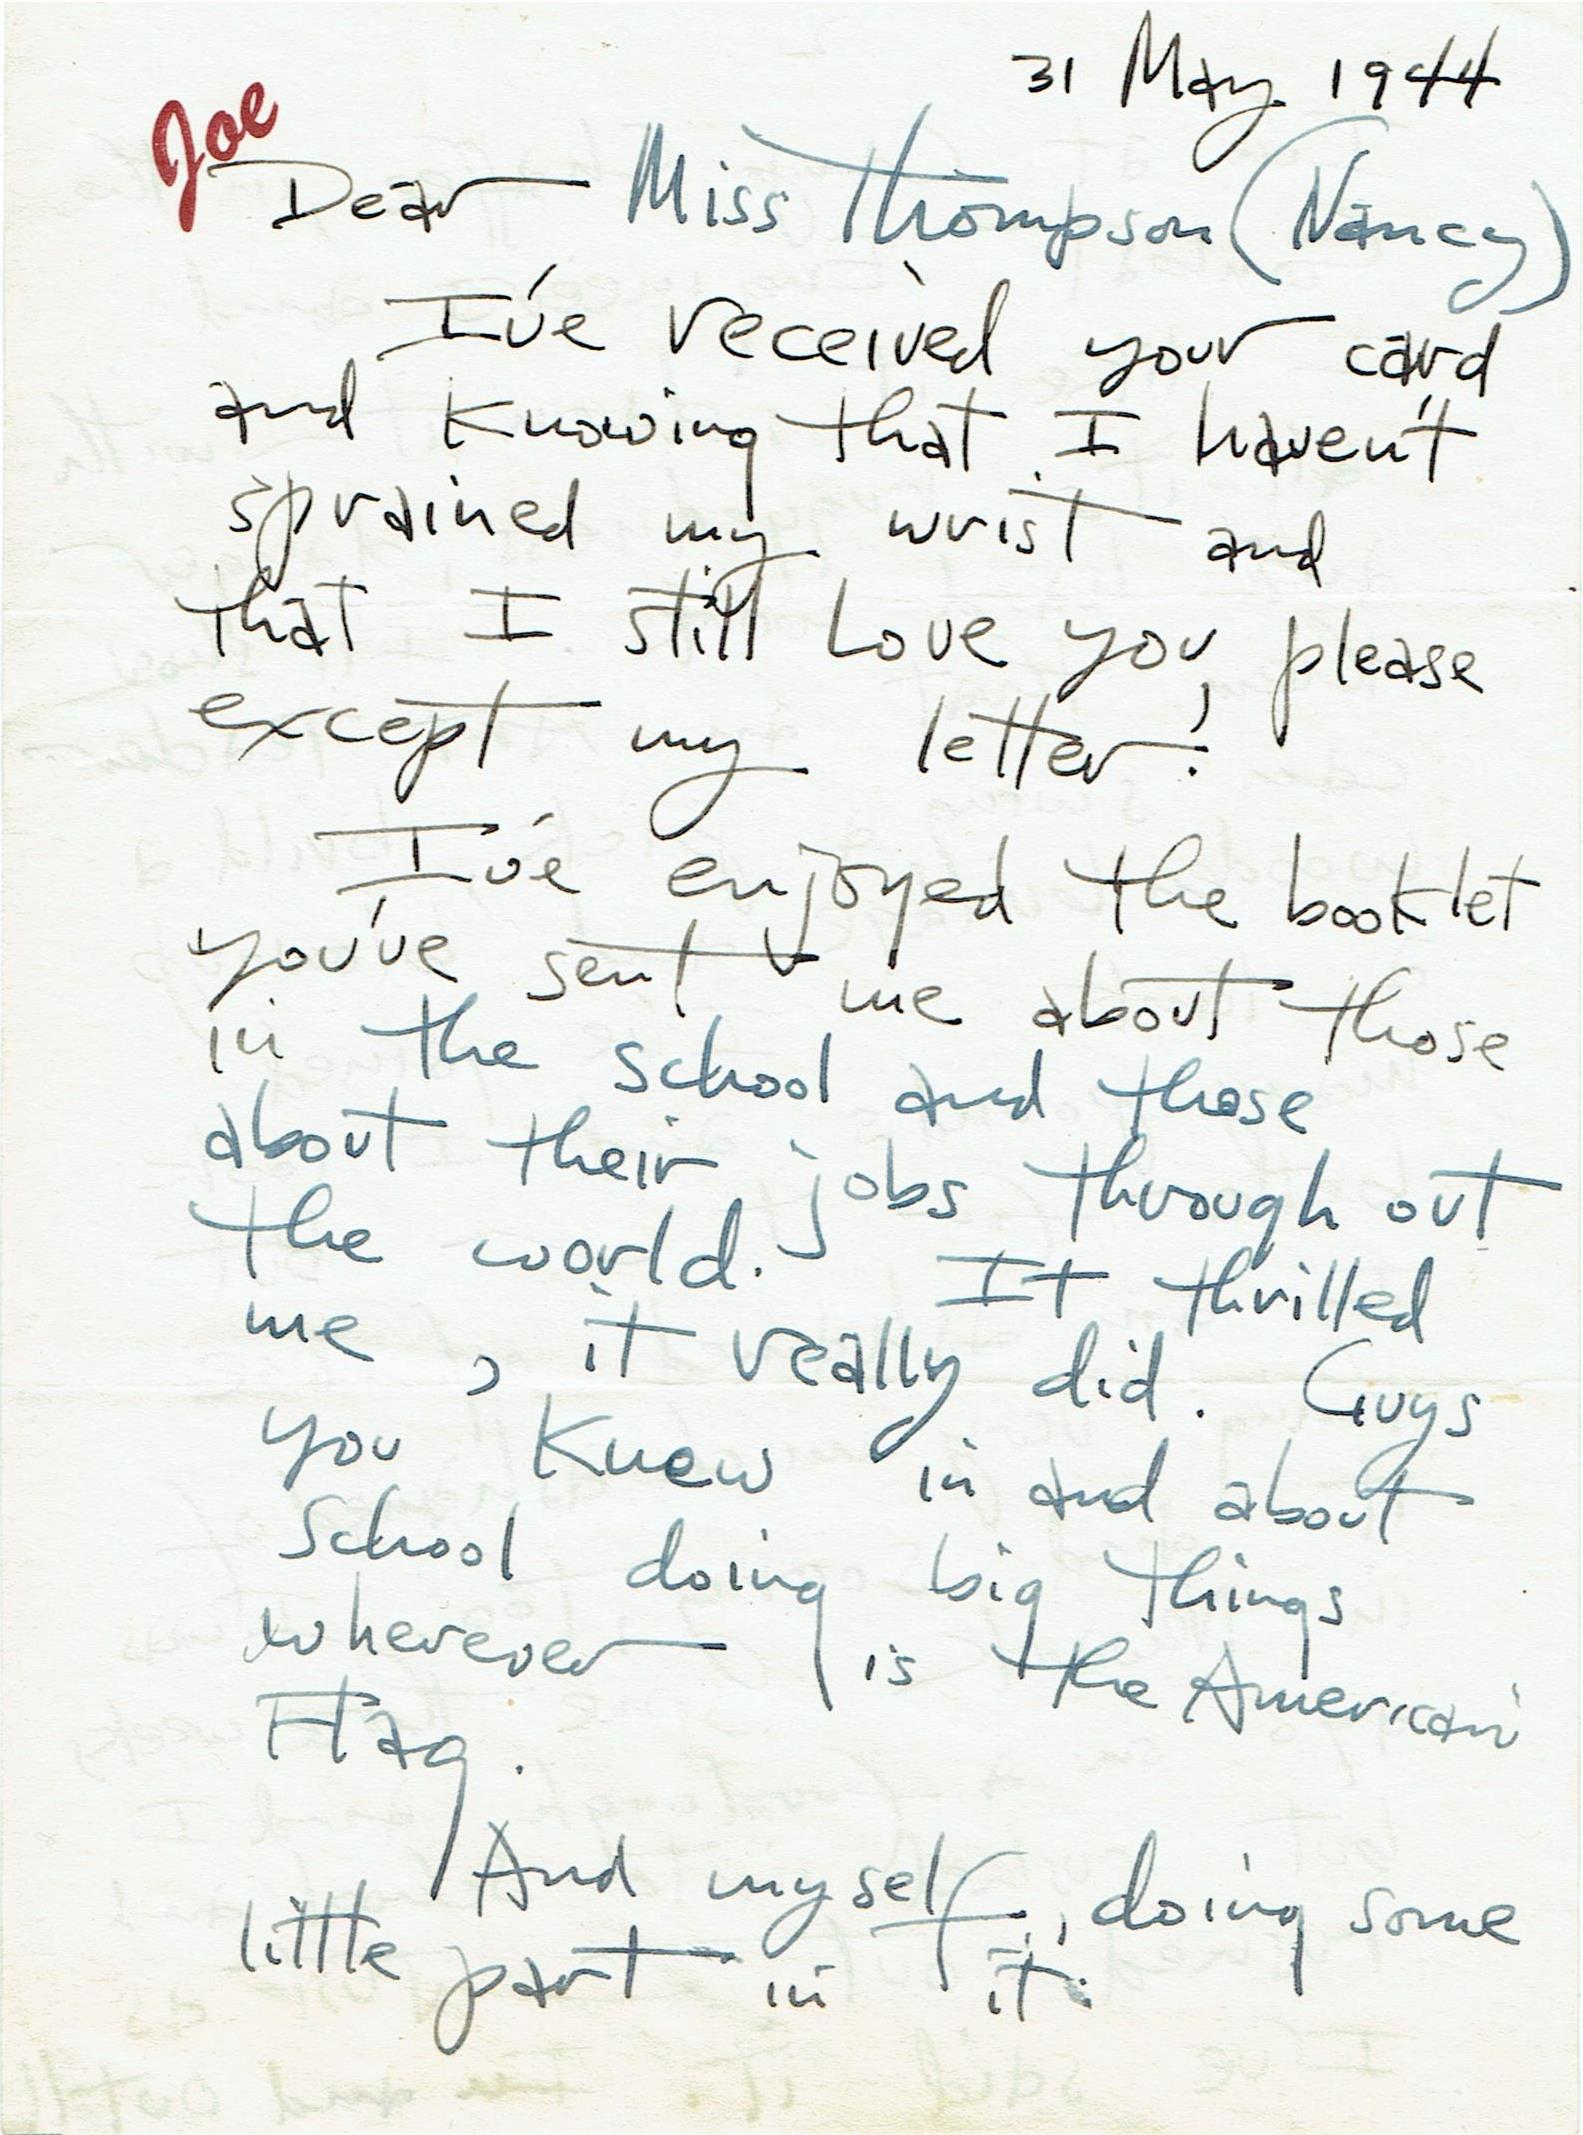 31 May 1944
Joe
Dear Miss Thompson (Nancy)
I've received your card
and knowing that I haven't
sprained my wrist and
that I still love you, please
except my letter!
I've enjoyed the booklet
you've sent me about those
in the school and those
about their jobs through out
the world. It thrilled
me, it really did. Guys
you knew in and about
School doing big things
wherever is the American
Flag.
And myself, doing some
little part in it.